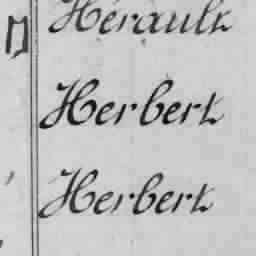 Hérault
Herbert
Herbert